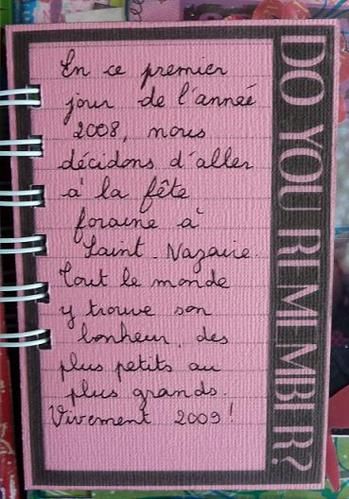 En ce premier
jour de l'année
2008, nous
décidons d'aller
à la fête
foraine à
Saint Nazaire.
Tout le monde
y trouve son
bonheur, des
plus petits au
plus grands.
Vivement 2009!
DO YOU REMEMBER?